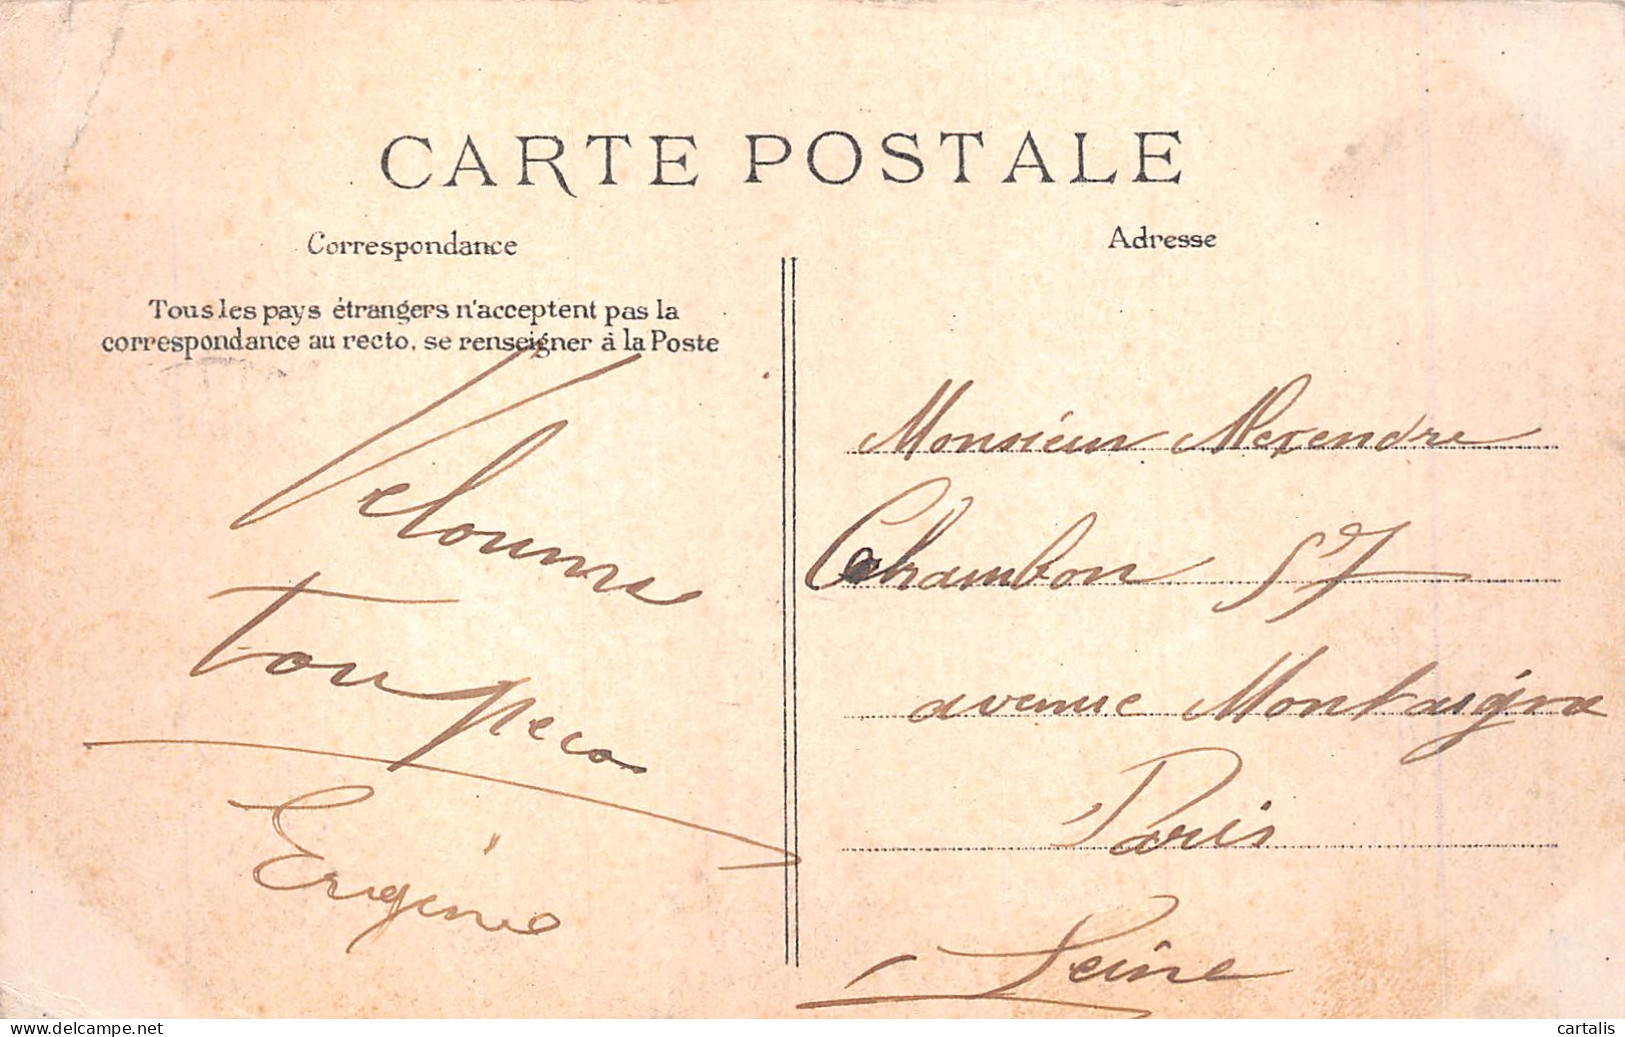 CARTE POSTALE
Correspondance
Tous les pays étrangers n'acceptent pas la
correspondance au recto, se renseigner à la Poste
ton
Eugénie
Adresse
Monsieur Alexendre
Chambon 57
avenue Montaigne
Paris
Seine
delcampe.net
cartalis